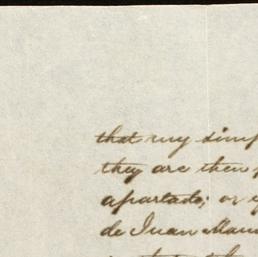 that my simp
they are then
apartado; or
de Juan Manu